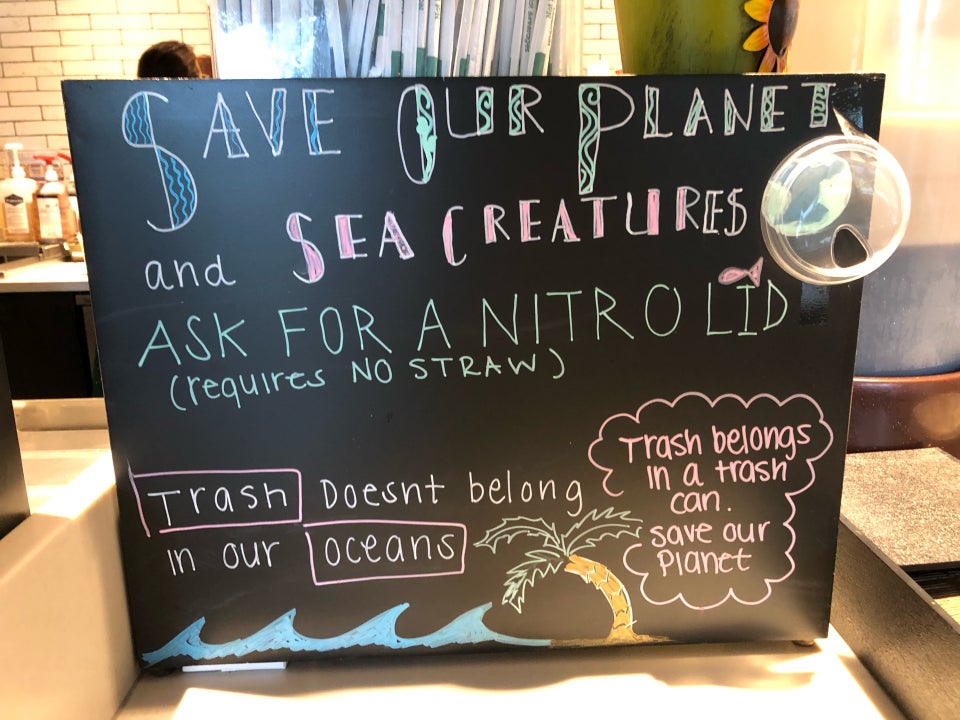 SAVE OUR PLANET
and SEA CREATURES
ASK FOR A NITRO LID
(requires NO STRAW)
Trash Doesnt belong
in our oceans
Trash belongs
in a trash
can.
save our
Planet